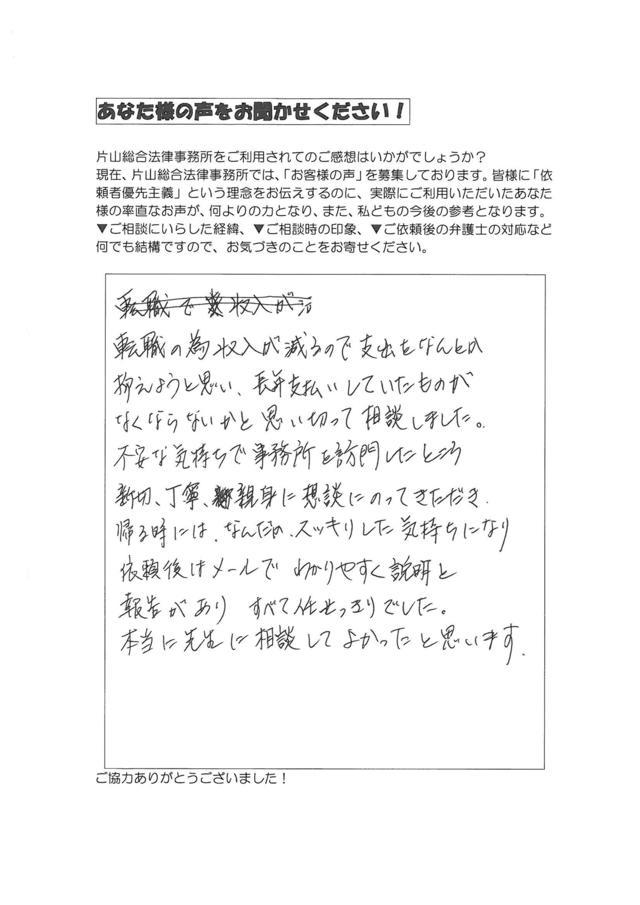 あなた様の声をお聞かせください！
片山総合法律事務所をご利用されてのご感想はいかがでしょうか？
現在、片山総合法律事務所では、「お客様の声」を募集しております。皆様に「依
頼者優先主義」という理念をお伝えするのに、実際にご利用いただいたあなた
様の率直なお声が、何よりの力となり、また、私どもの今後の参考となります。
▼ご相談にいらした経緯、▼ご相談時の印象、▼ご依頼後の弁護士の対応など
何でも結構ですので、お気づきのことをお寄せください。
転職で収入が
転職の為収入が減るので支出をなんとか
抑えようと思い、長年支払いしていたものが
なくならないかと思い切って相談しました。
不安な気持ちで事務所を訪問したところ
親切、丁寧、親身に想談にのっていただき
帰る時には、なんだか、スッキリした気持ちになり
依頼後はメールでわかりやすく説明と
報告があり すべて任せっきりでした。
本当に先生に相談してよかったと思います.
ご協力ありがとうございました！